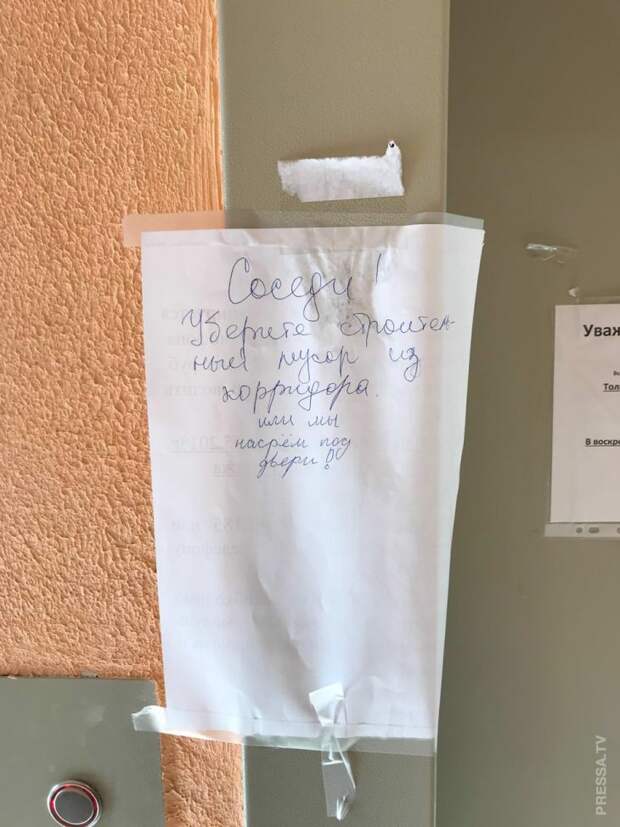 Соседи!
Уберите строител-
ный мусор из
корридора.
или мы
насрём под
двери!
Уваж
Тол
В воскре
PRESSA.TV